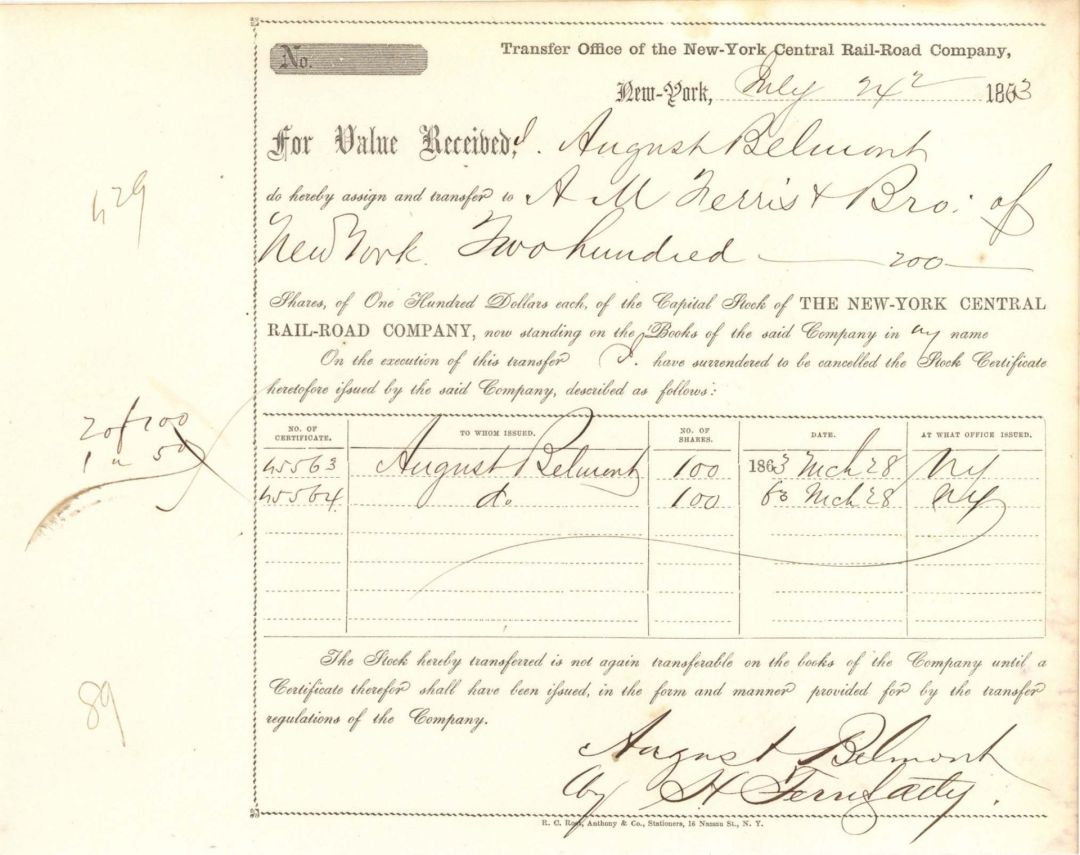 No.
Transfer Office of the New-York Central Rail-Road Company,
New-York, July 24 1863
For Value Received, I. August Belmont
do hereby assign and transfer to A M Ferris & Bro: of
New York. Two hundred 200
Shares, of One Hundred Dollars each, of the Capital Stock of THE NEW-YORK CENTRAL
RAIL-ROAD COMPANY, now standing on the Books of the said Company in my name
On the execution of this transfer I. have surrendered to be cancelled the Stock Certificate
heretofore issued by the said Company, described as follows:
NO. OF CERTIFICATE. TO WHOM ISSUED. NO. OF SHARES. DATE. AT WHAT OFFICE ISSUED.
45563 August Belmont 100 1863 Mch 28 NY
45564 do 100 63 Mch 28 NY
The Stock hereby transferred is not again transferable on the books of the Company until a
Certificate therefor shall have been issued, in the form and manner provided for by the transfer
regulations of the Company.
August Belmont
by H
R. C. Root, Anthony & Co., Stationers, 16 Nassau St., N. Y.
429
2 of 100
1 " 50
89